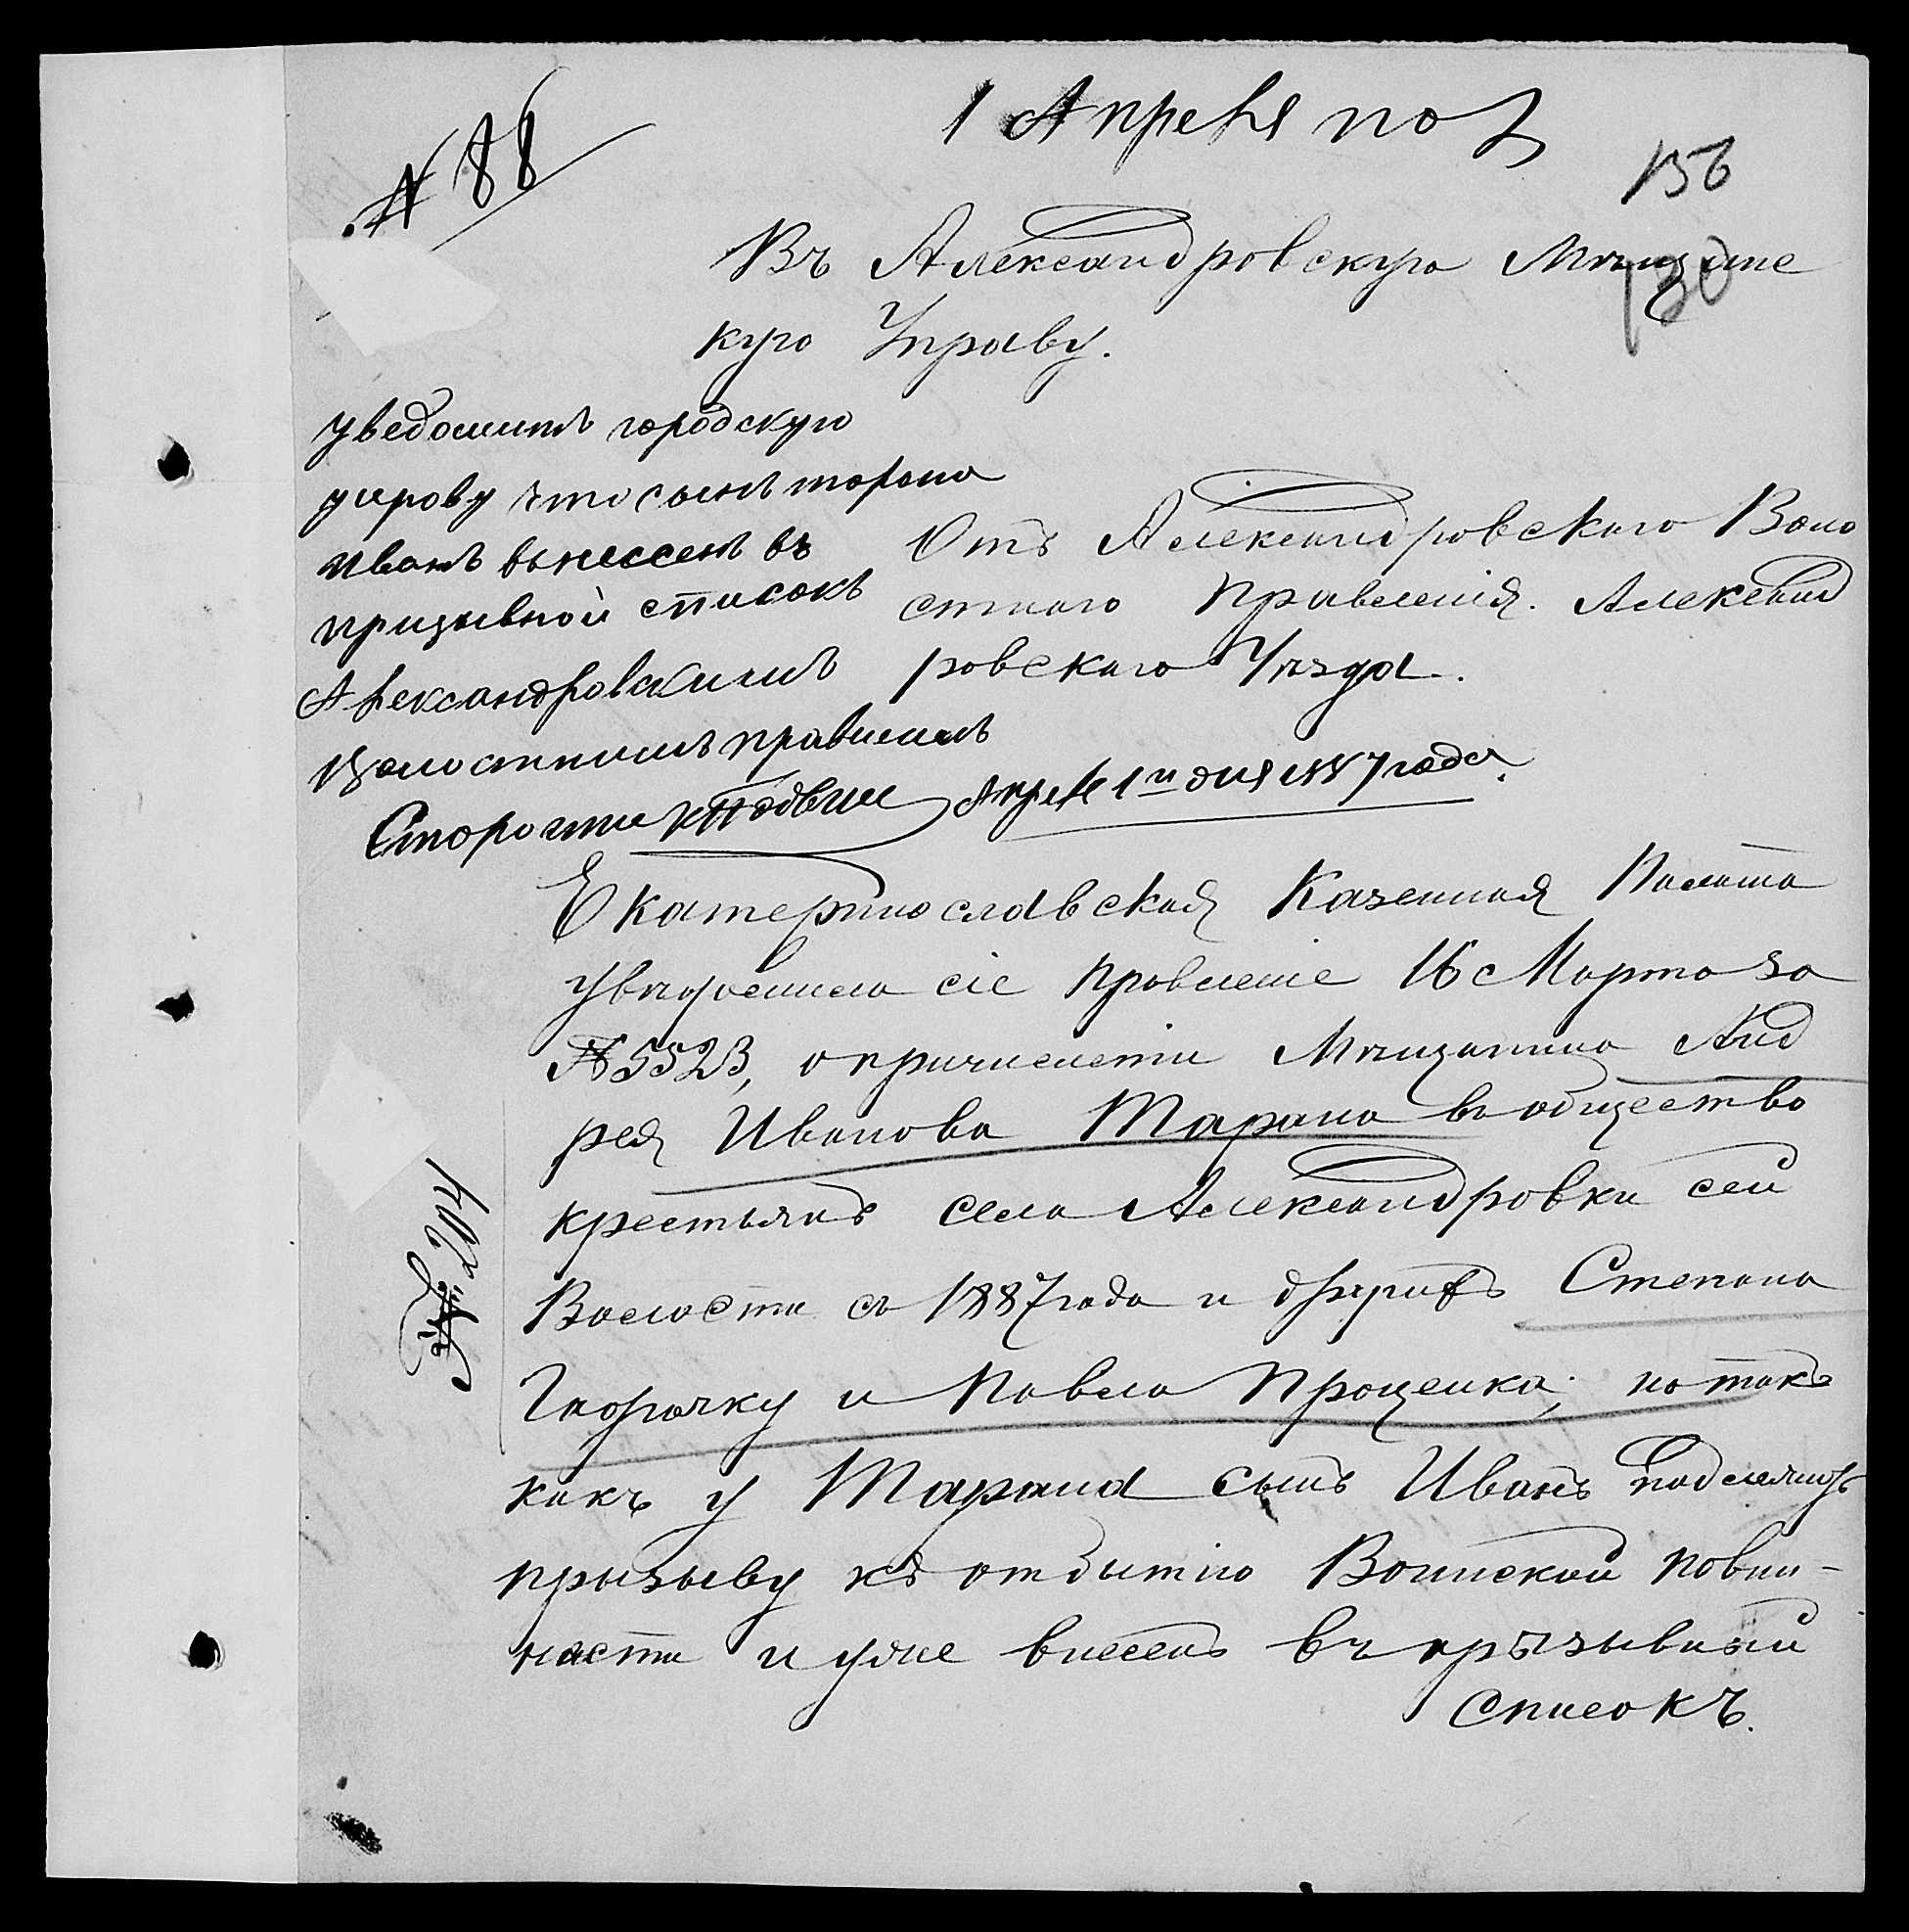 № 88
1 Апреля по
156
130
Въ Александровскую Мѣщанс
кую Управу.
уведомить городскую
управу что сынъ тарана
иванъ внессенъ въ
призывной списокъ
Александровскимъ
Волостнимъ правленемъ
Староста
Апреля 1го дня 1887 года
Отъ Александровскаго Воло
стного Правленія. Александ
ровскаго Уѣзда.
Екатеринославская Казенная Палата
увѣдомила сіе Правленіе 16 Марта за
№ 5523, о причислети Мѣщанина Анд
рея Иванова Тарана въ общество
крестьянъ села Александровки сей
Волости съ 1887 года и другихъ Степана
и Павла Проценка; но такъ
какъ у Тарана сынъ Иванъ подлежитъ
призыву къ отбытію Воинской повин-
ности и уже внесенъ въ призывный
списокъ.
№ 204